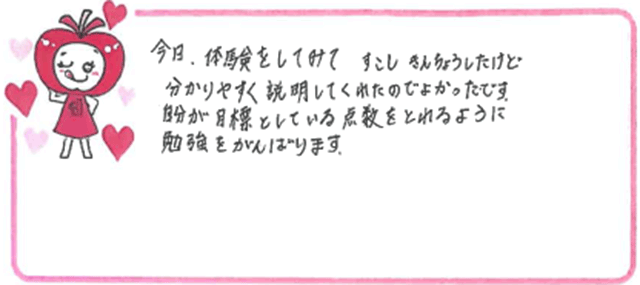 今日、体験をしてみて すこし きんちょうしたけど
分かりやすく説明してくれたのでよかったです。
自分が目標としている点数をとれるように
勉強をがんばります。